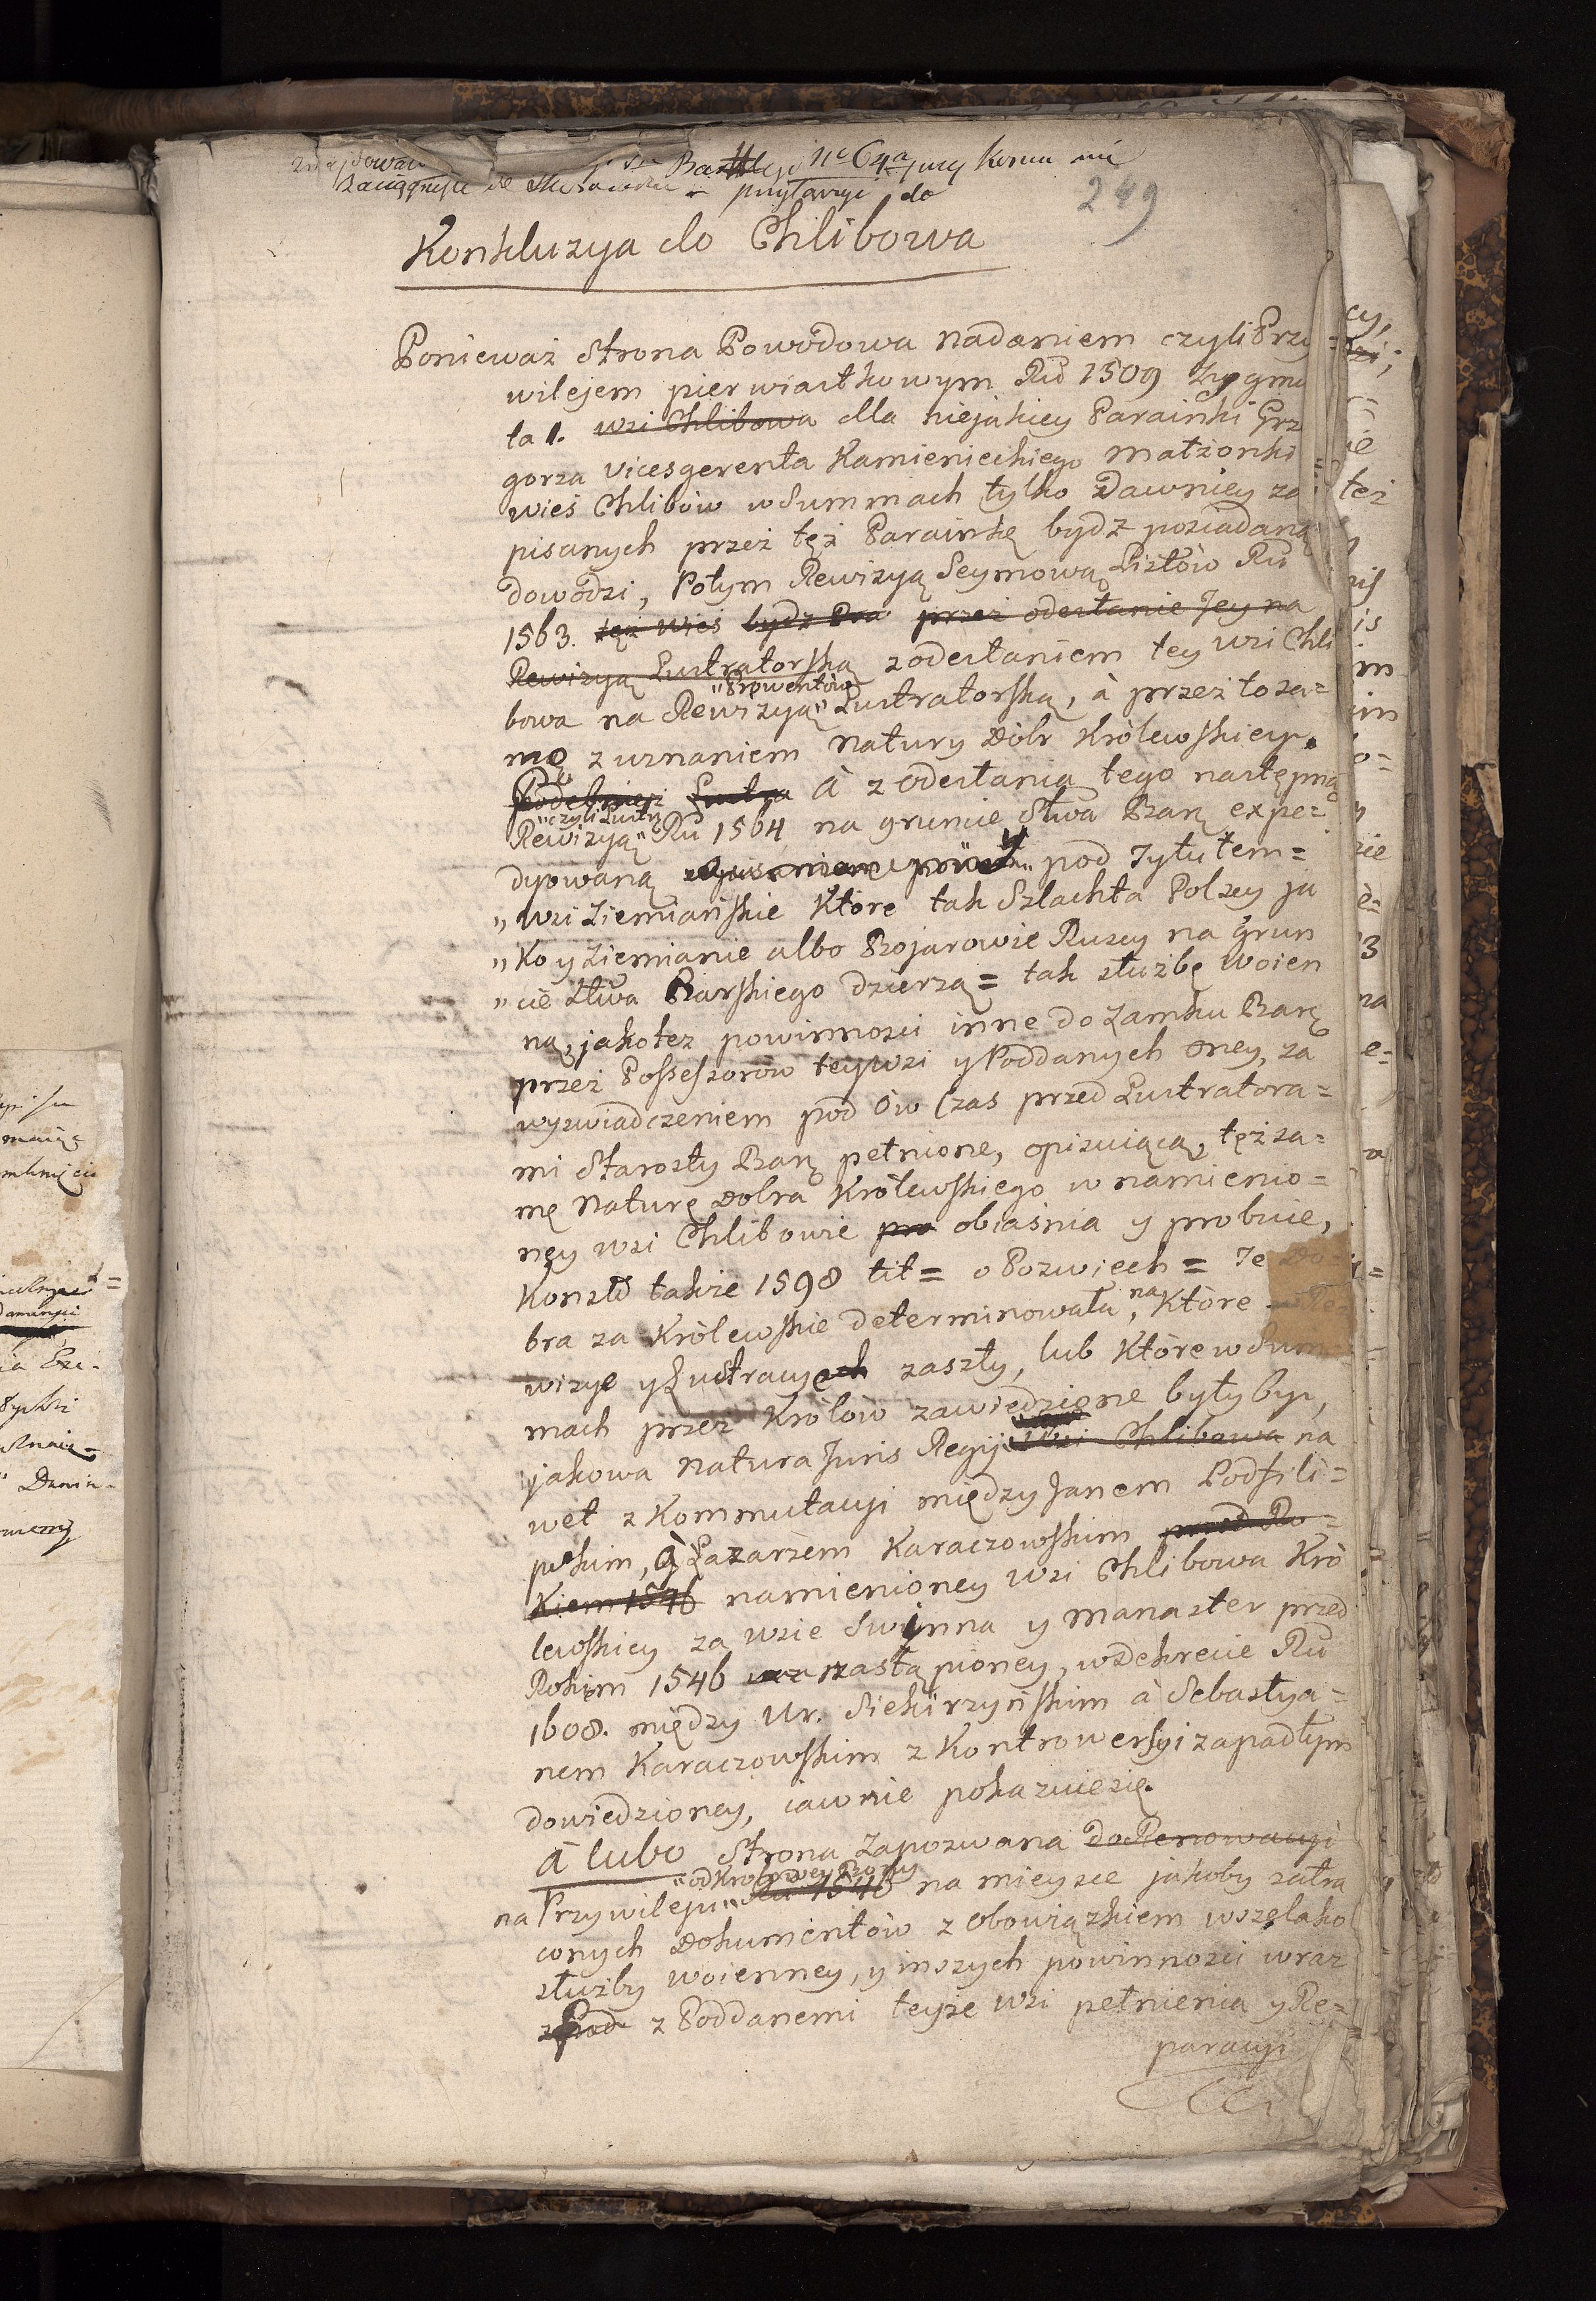 249
Konkluzya do Chlibowa
Ponieważ Strona Powodowa nadaniem czyli Przy
wilejem pierwiastkowym Ru 1509 Zygmu
ta 1. wsi Chlibowa dla niejakiey Parainki Grz
gorza Vicesgerenta Kamienieckiego małżonki
wieś Chlibów w Summach tylko Dawniey za
pisanych przez też Parainkę bydź posiadaną
dowodzi, Potym Rewizyą Seymową Listów Ru
1563. też wieś bydź Dra przez odesłanie Jey na
Rewizyą Lustratorską z odesłaniem tey wsi Chli
bowa na Rewizyą "Prowentów" Lustratorską, à przez to sa=
mo z uznaniem Natury Dóbr Królewskiey.
à z odesłania tego następną
Rewizyą "czyli Lustr" Ru 1564 na gruncie Stwa Barꝫ expe=
dyowaną pod Tytułem=
" Wsi Ziemiańskie Które tak Szlachta Polscy ja
" Ko y Ziemianie albo Bojarowie Ruscy na Grun
" cie Stwa Barskiego dzierzą = tak służbę woien
ną, jakoteż powinności inne do Zamku Barꝫ
przez Possessorów tey wsi y Poddanych oney, za
wyświadczeniem pod ów Czas przed Lustratora=
mi Starosty Barꝫ pełnione, opisuiącą, też sa=
mę Naturę Dobra Królewskiego w namienio=
ney wsi Chlibowie pra obiaśnia y probuie,
Konstŭ także 1598 tit= o Pozwiech = Te Do
bra za Królewskie determinowała, na Które
wizye y Lustracyech zaszły, lub Które w Sum
mach przez Królów zawiedzione byłyby,
jakowa Natura Juris Regij wsi Chlibowa na
wet z Kommutacyi między Janem Podfili=
pskim, à Łazarzem Karaczowskim przed Ro=
Kiem 1546 namienioney wsi Chlibowa Kró
lewskiey za wsie Swinna y Manaster przed
Rokim 1546 nastąpioney, w Dekrecie Ru
1608. między Ur. Siekirzyńskim à Sebastya=
nem Karaczowskim z Kontrowersyi zapadłym
dowiedzioney, iawnie pokazuie się.
à lubo Strona Zapozwana do Renowacyi
na Przywileju "od Krolowey Bony" Ru 1546 na mieysce jakoby zatra
conych Dokumentów z obowiązkiem wszelako
służby woienney, y inszych powinności wraz
z Pod z Poddanemi teyże wsi pełnienia y Re=
paracyi